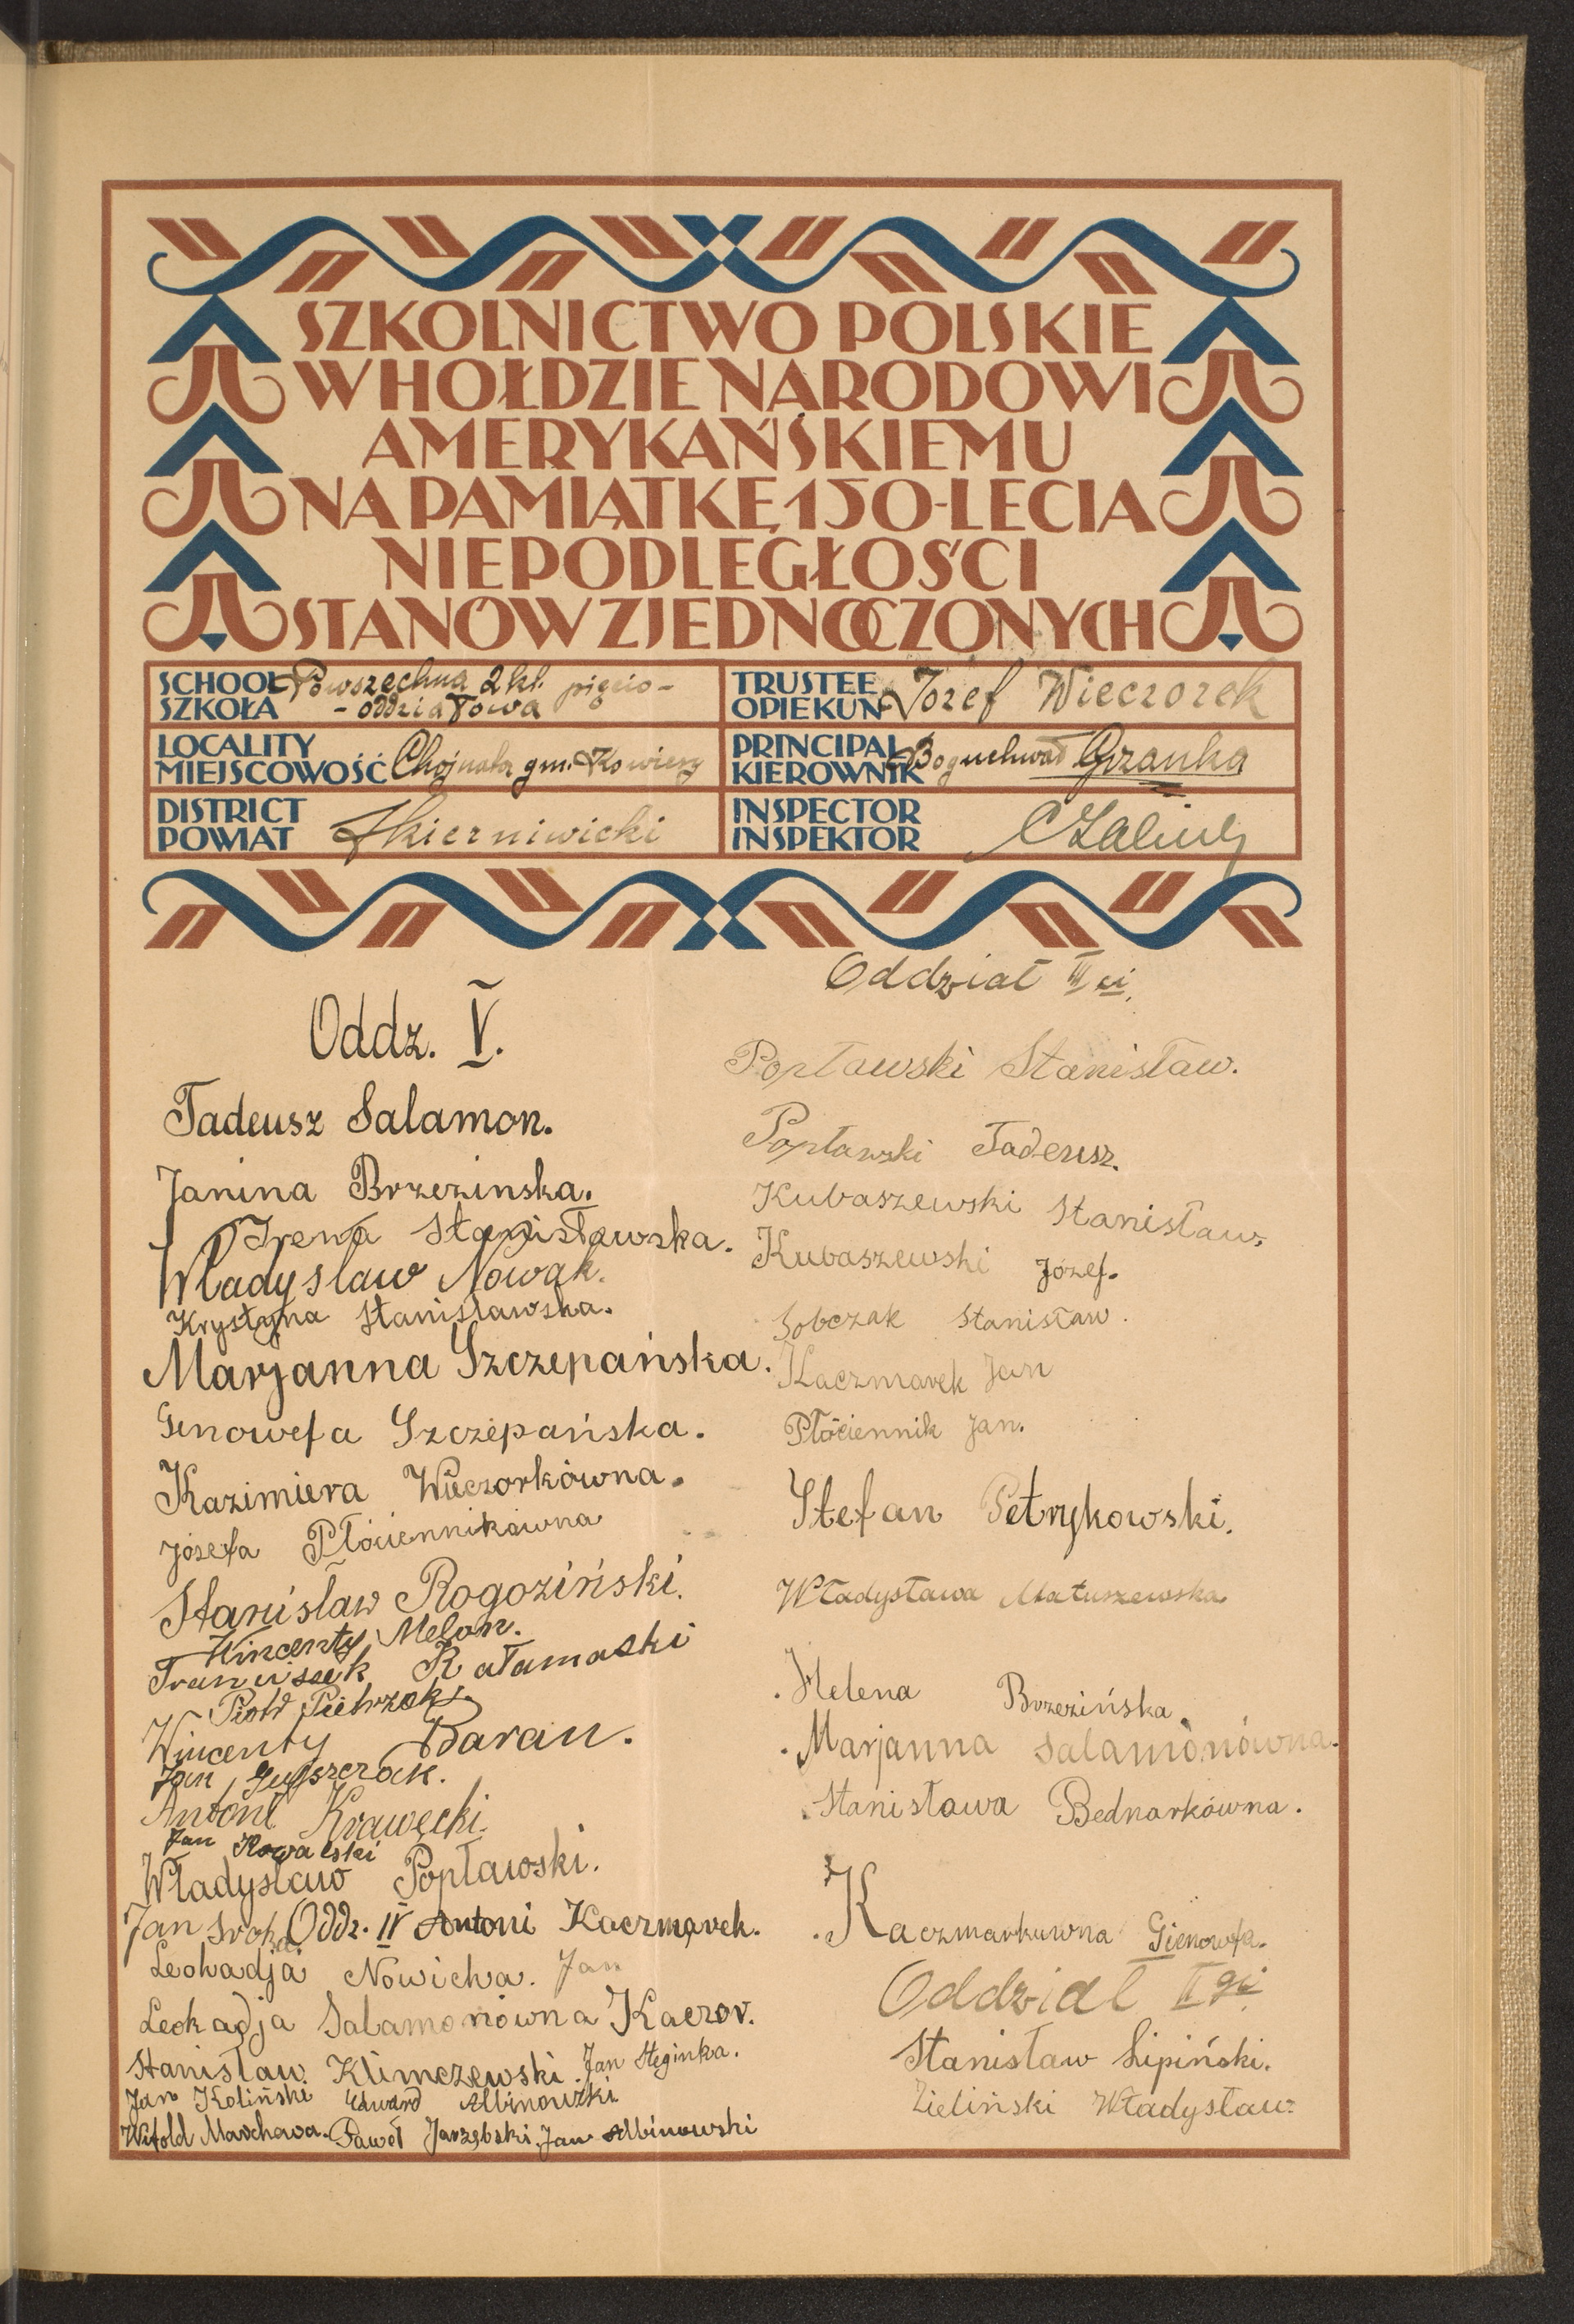 SZKOLNICTWO POLSKIE
W HOŁDZIE NARODOWI
AMERYKAŃSKIEMU
NA PAMIĄTKĘ 150-LECIA
NIEPODLEGŁOŚCI
STANÓW ZJEDNOCZONYCH
SCHOOL
SZKOŁA
Powszechna 2 kl. pięcio-
-oddziałowa
TRUSTEE
OPIEKUN
Józef Wieczorek
LOCALITY
MIEJSCOWOŚĆ
Chojnata gm. Kowiesy
PRINCIPAL
KIEROWNIK
Boguchwał Grzanka
DISTRICT
POWIAT
Skierniwicki
INSPECTOR
INSPEKTOR
Oddz. V.
Tadeusz Salamon.
Janina Brzezinska.
Irena Stanisławska.
Władysław Nowak.
Krystyna Stanisławska.
Marjanna Szczepańska.
Genowefa Szczepańska.
Kazimiera Wieczorkówna.
Józefa Płóciennikówna
Stanisław Rogoziński.
Wincenty Melon.
Franciszek Ratamaski
Piotr Pietrzak
Wincenty Baran.
Jan Guszczak.
Antoni Krawęcki.
Jan Kowalski
Władysław Popławski.
Jan Sroka
Oddz. IV Antoni Kaczmarek.
Leokadja Nowicka. Jan
Leokadja Salamonówna Kaczor.
Stanisław Klimczewski. Jan Steginka.
Jan Koliński Edward Albinowski
Witold Marchawa. Paweł Jarzębski. Jan Albinowski
Oddział III ci.
Popławski Stanisław.
Popławski Tadeusz.
Kubaszewski Stanisław.
Kubaszewski Józef.
Sobczak Stanisław.
Kaczmarek Jan
Płóciennik Jan.
Stefan Petrykowski.
Władysława Matuszewska
Helena Brzezińska.
Marjanna Salamonówna.
Stanisława Bednarkówna.
Kaczmarkuwna Gienowefa.
Oddział II gi
Stanisław Lipiński.
Zieliński Władysław.